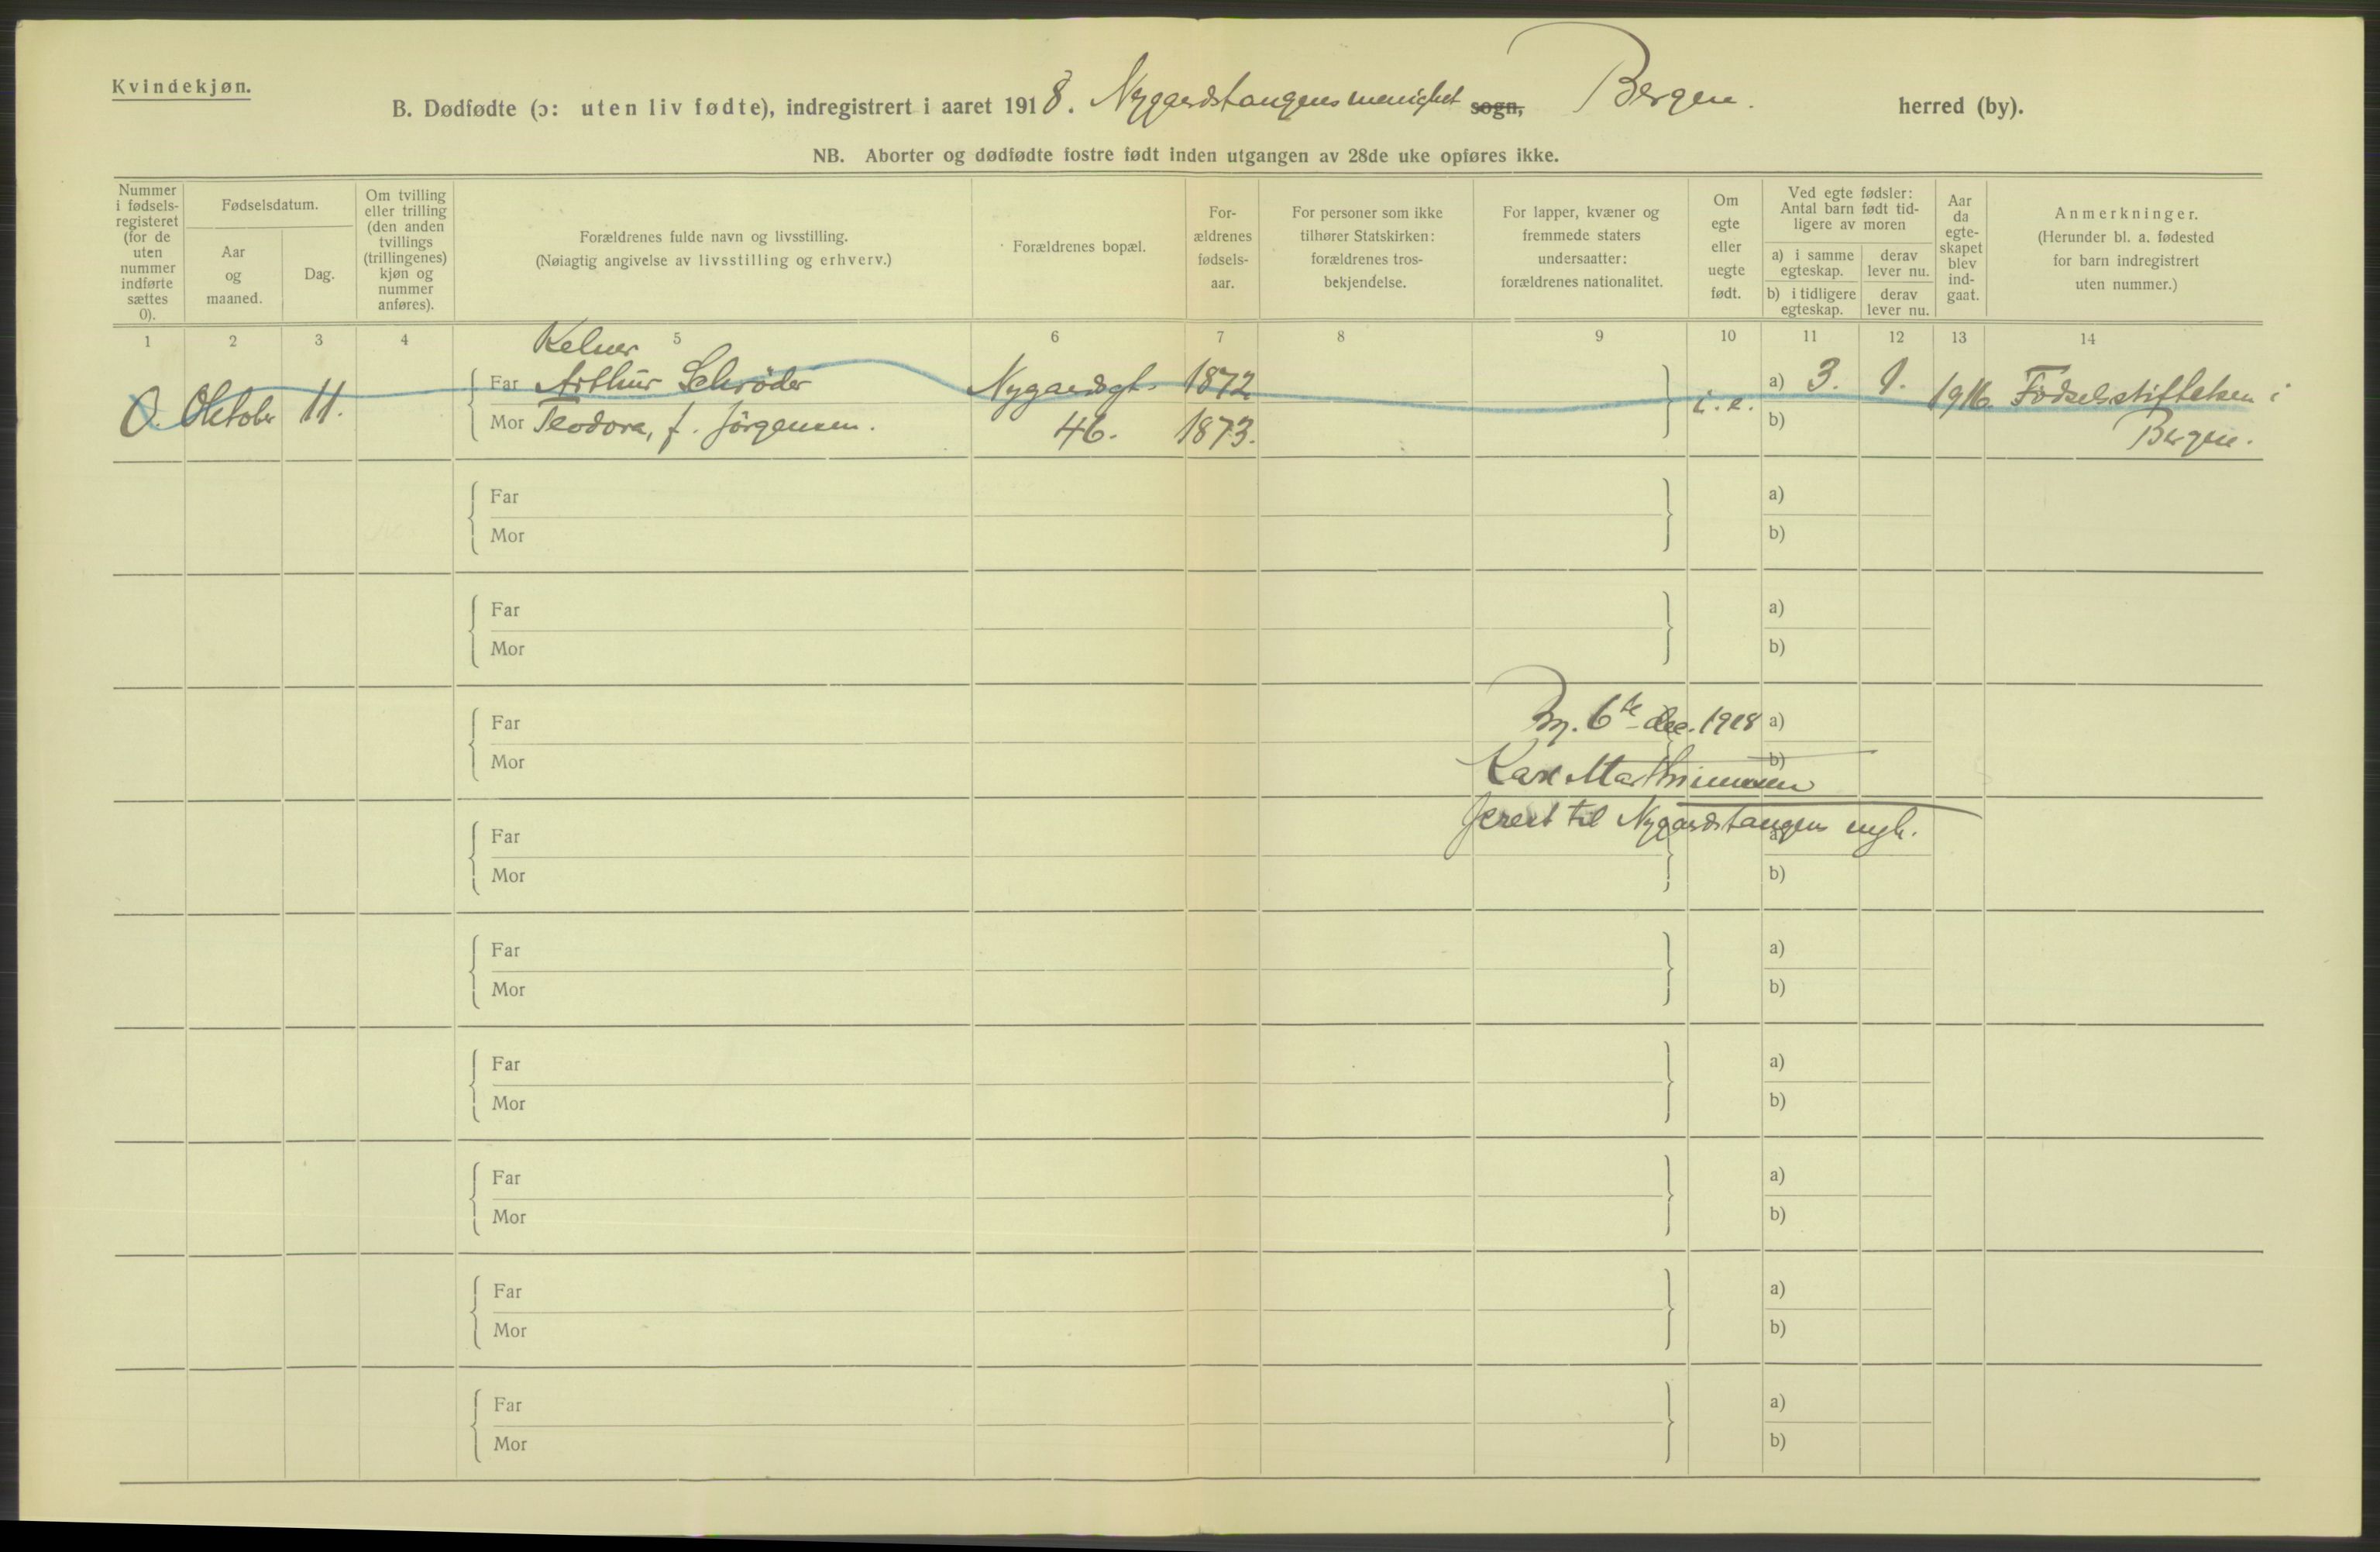 Kvindekjøn.
B. Dødfødte (ɔ: uten liv fødte), indregistrert i aaret 1918. Nygaardstangens menighet sogn, Bergen. herred (by).
NB. Aborter og dødfødte fostre født inden utgangen av 28de uke opføres ikke.
Nummer i fødsels-registeret (for de uten nummer indførte sættes 0).
Fødselsdatum.
Aar og maaned.
Dag.
Om tvilling eller trilling (den anden tvillings (trillingenes) kjøn og nummer anføres).
Forældrenes fulde navn og livsstilling.
(Nøiagtig angivelse av livsstilling og erhverv.)
Forældrenes bopæl.
For-ældrenes fødsels-aar.
For personer som ikke tilhører Statskirken: forældrenes tros-bekjendelse.
For lapper, kvæner og fremmede staters undersaatter: forældrenes nationalitet.
Om egte eller uegte født.
Ved egte fødsler: Antal barn født tid-ligere av moren
a) i samme egteskap.
derav lever nu.
b) i tidligere egteskap.
derav lever nu.
Aar da egte-skapet blev ind-gaat.
Anmerkninger.
(Herunder bl. a. fødested for barn indregistrert uten nummer.)
1 2 3 4 5 6 7 8 9 10 11 12 13 14
Kelner
Far Arthur Schrøder Nygaardsgt. 1872 a) 3. 1.
0. Oktober 11. i. e. 1916. Fødselsstiftelsen i
Mor Teodora, f. Jörgensen. 46. 1873. b) Bergen.
Far a)
Mor b)
Far a)
Mor b)
Far 6te dec. 1918 a)
Mor Karl Marthinussen b)
Far til Nygaardstangens mgh. a)
Mor b)
Far a)
Mor b)
Far a)
Mor b)
Far a)
Mor b)
Far a)
Mor b)
Far a)
Mor b)